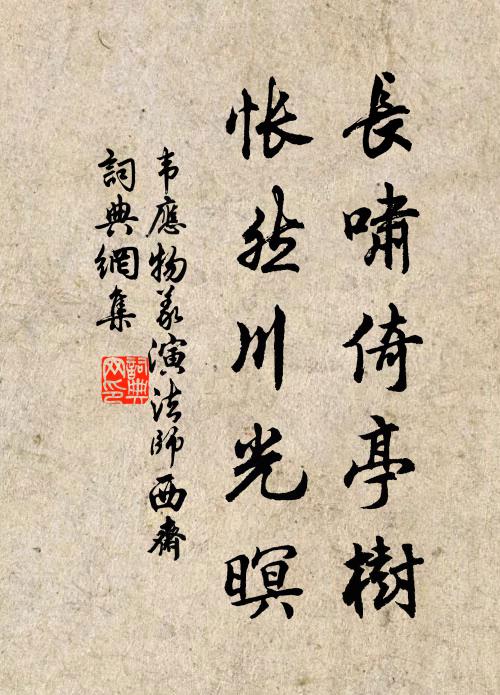 長嘯倚亭樹
悵然川光暝
韦應物義演法師西齋
詞典網集
詞典網印